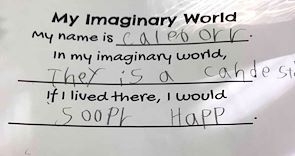 My Imaginary World
My name is caleborr.
In my imaginary world,
They is a cande st
If I lived there, I would
soopr Happ.